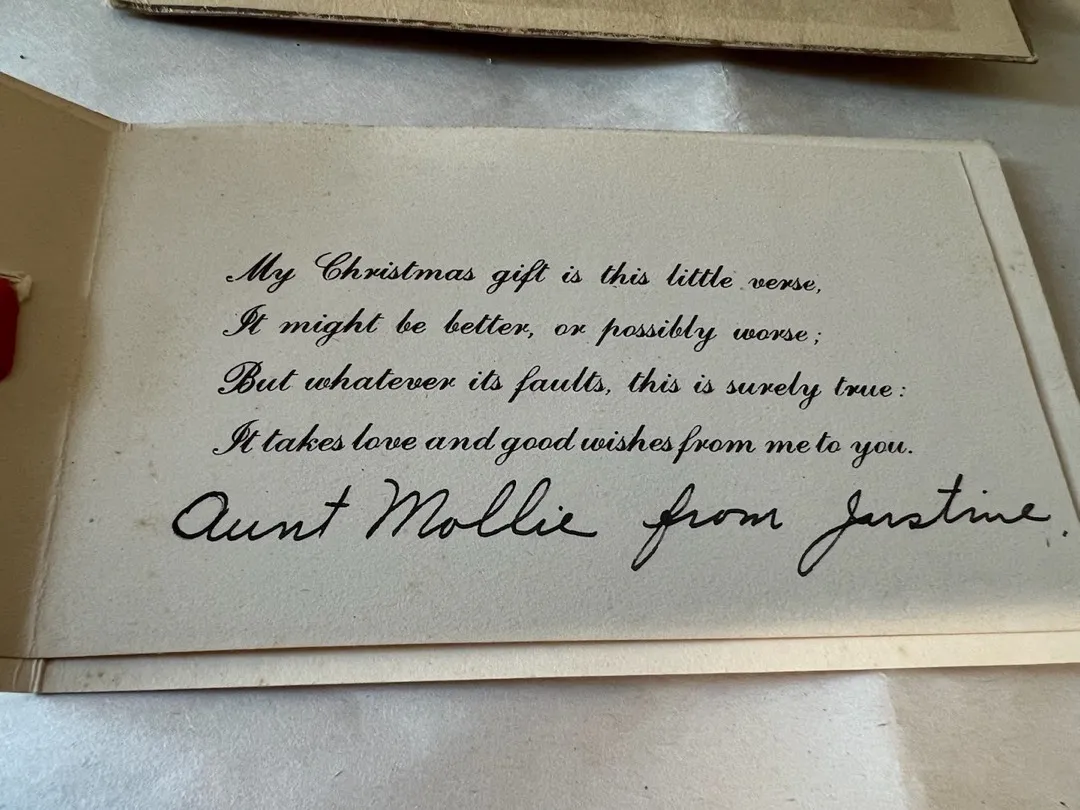 My Christmas gift is this little verse,
It might be better, or possibly worse;
But whatever its faults, this is surely true:
It takes love and good wishes from me to you.
Aunt Mollie from Justine.